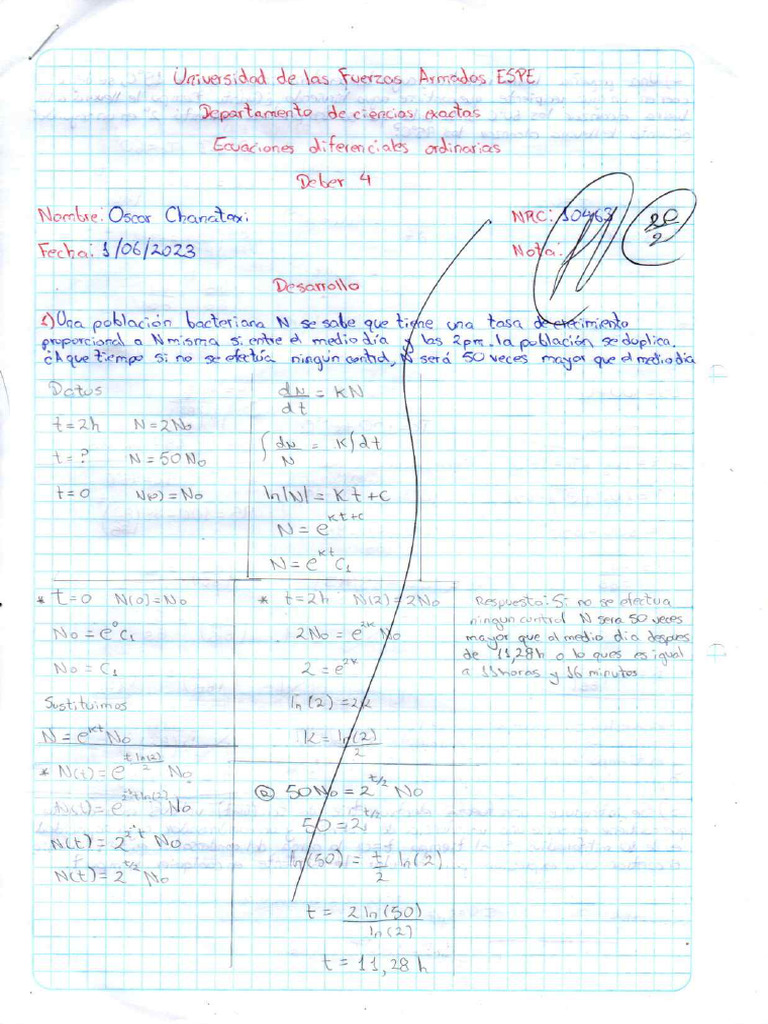 Universidad de las Fuerzas Armadas ESPE
Departamento de ciencias exactas
Ecuaciones diferenciales ordinarias
Deber 4
Nombre: Oscar Chanataxi
NRC: 10463
20/2
Fecha: 1/06/2023
Nota:
Desarrollo
1) Una población bacteriana N se sabe que tiene una tasa de crecimiento
proporcional a N misma si entre el medio día y las 2pm. la población se duplica.
¿A que tiempo si no se efectúa ningún control, N será 50 veces mayor que el medio día
Datos
t=2h N=2No
t=? N=50No
t=0 N(0)=No
dN/dt = KN
∫ dN/N = K∫dt
ln|N| = Kt+c
N=e^{Kt+c}
N=e^{Kt} C₁
* t=0 N(0)=No
No=e⁰C₁
No=C₁
Sustituimos
N=e^{Kt}No
* N(t)=e^{t ln(2)/2} No
N(t)=e^{2⁻¹t ln(2)} No
N(t)=2^{2⁻¹t} No
N(t)=2^{t/2} No
* t=2h N(2)=2No
2No=e^{2k} No
2=e^{2k}
ln(2)=2k
K=ln(2)/2
@ 50No=2^{t/2} No
50=2^{t/2}
ln(50)=t/2 ln(2)
t=2ln(50)/ln(2)
t=11,28h
Respuesta: Si no se efectua
ningun control N sera 50 veces
mayor que al medio dia despues
de 11,28h o lo ques es igual
a 11horas y 16 minutos